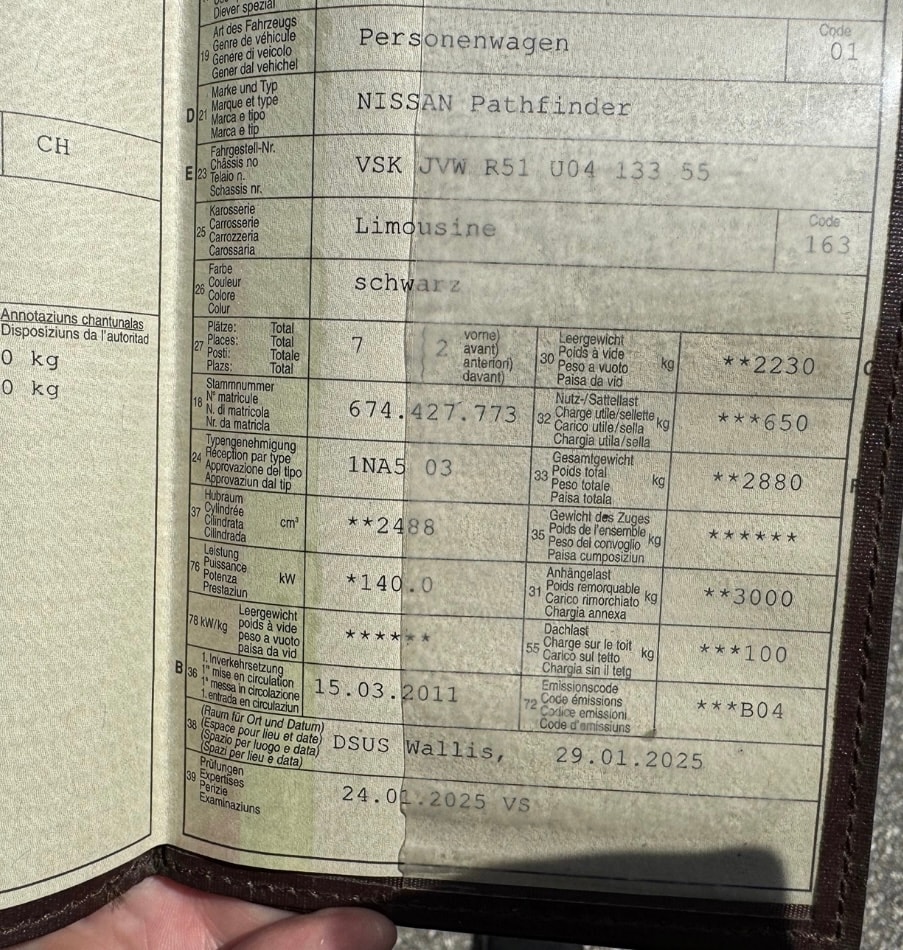 Diever spezial
19 Art des Fahrzeugs
Genre de véhicule
Genere di veicolo
Gener dal vehichel
Personenwagen
Code
01
D 21 Marke und Typ
Marque et type
Marca e tipo
Marca e tip
NISSAN Pathfinder
CH
E 23 Fahrgestell-Nr.
Châssis no
Telaio n.
Schassis nr.
VSK JVW R51 U04 133 55
25 Karosserie
Carrosserie
Carrozzeria
Carossaria
Limousine
Code
163
26 Farbe
Couleur
Colore
Colur
schwarz
Annotaziuns chantunalas
Disposiziuns da l'autoritad
0 kg
0 kg
27 Plätze: Total
Places: Total
Posti: Totale
Plazs: Total
7
( 2 vorne)
avant)
anteriori)
davant)
30 Leergewicht
Poids à vide kg
Peso a vuoto
Paisa da vid
**2230
18 Stammnummer
N° matricule
N. di matricola
Nr. da matricla
674.427.773
32 Nutz-/Sattellast
Charge utile/sellette kg
Carico utile/sella
Chargia utila/sella
***650
24 Typengenehmigung
Réception par type
Approvazione del tipo
Approvaziun dal tip
1NA5 03
33 Gesamtgewicht
Poids total kg
Peso totale
Paisa totala
**2880
37 Hubraum
Cylindrée cm³
Cilindrata
Cilindrada
**2488
35 Gewicht des Zuges
Poids de l'ensemble kg
Peso del convoglio
Paisa cumposiziun
******
76 Leistung
Puissance kW
Potenza
Prestaziun
*140.0
31 Anhängelast
Poids remorquable kg
Carico rimorchiato
Chargia annexa
**3000
78 kW/kg Leergewicht
poids à vide
peso a vuoto
paisa da vid
******
55 Dachlast
Charge sur le toit kg
Carico sul tetto
Chargia sin il tetg
***100
B 36 1. Inverkehrsetzung
1re mise en circulation
1a messa in circolazione
1. entrada en circulaziun
15.03.2011
72 Emissionscode
Code émissions
Codice emissioni
Code d'emissiuns
***B04
38 (Raum für Ort und Datum)
(Espace pour lieu et date)
(Spazio per luogo e data)
(Spazi per lieu e data)
DSUS Wallis, 29.01.2025
39 Prüfungen
Expertises
Perizie
Examinaziuns
24.01.2025 VS